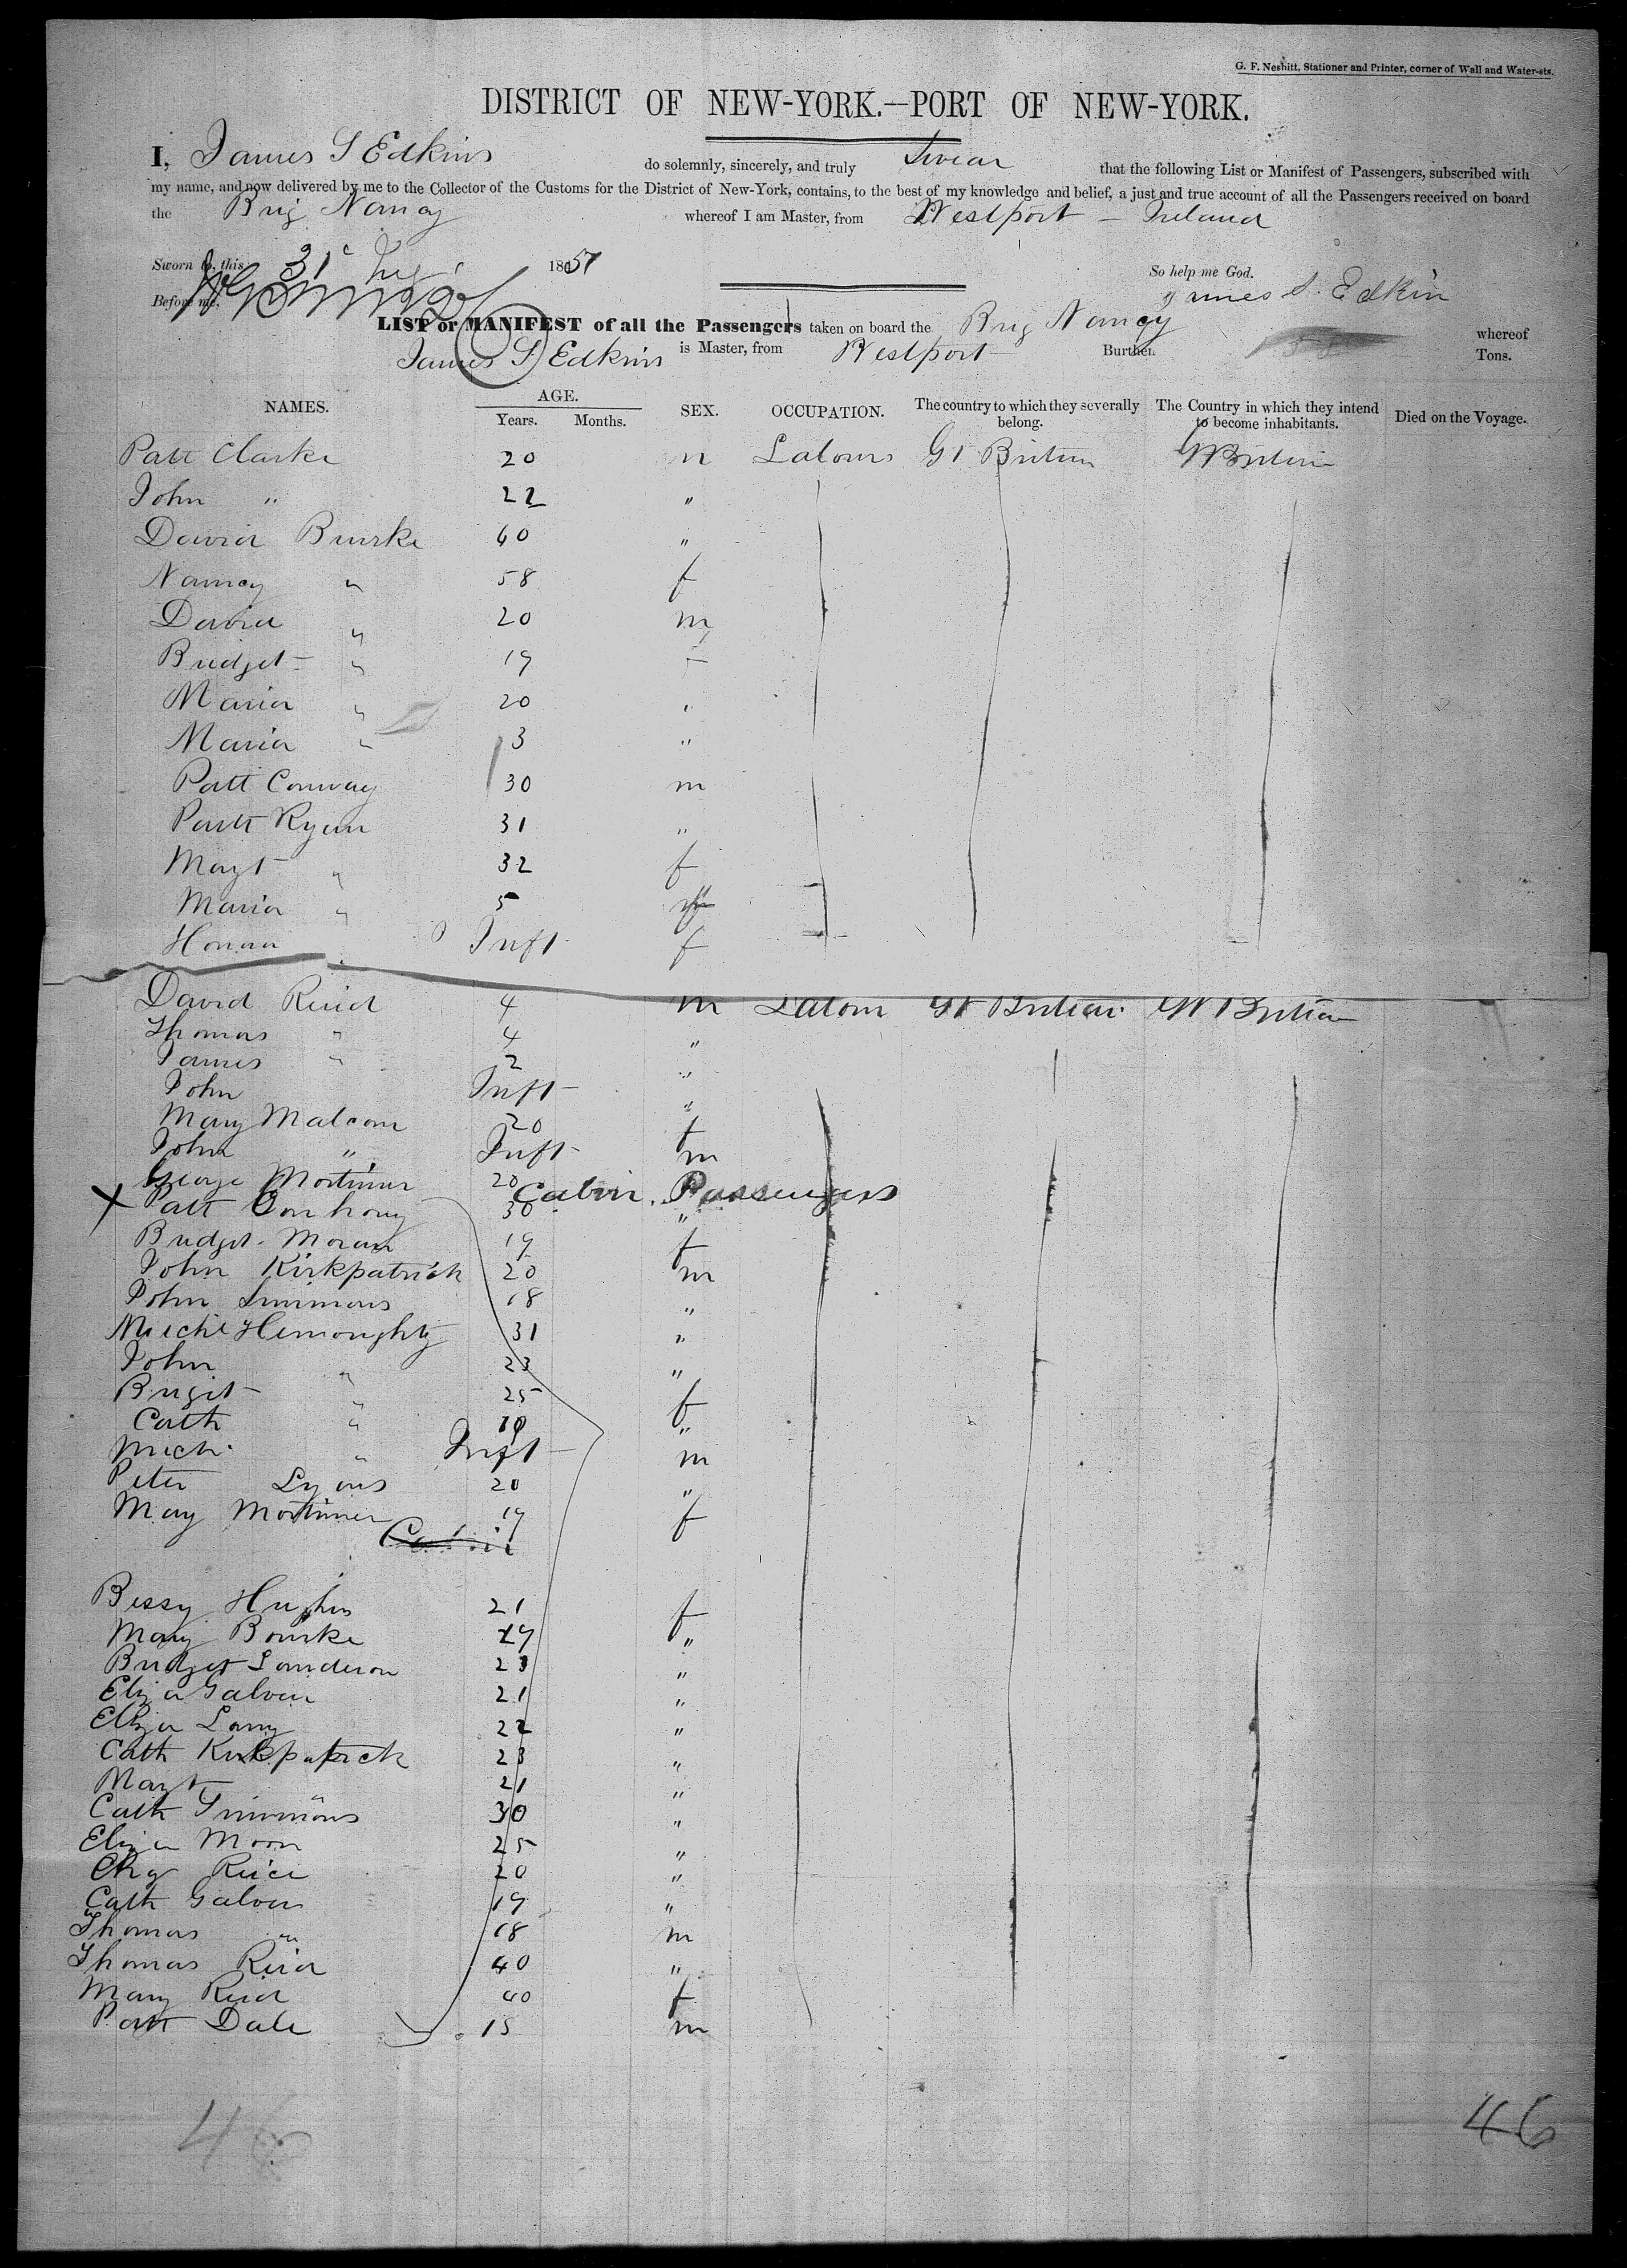 G. F. Nesbitt, Stationer and Printer, corner of Wall and Water-sts.
DISTRICT OF NEW-YORK.—PORT OF NEW-YORK.
I, James S Edkins do solemnly, sincerely, and truly Swear that the following List or Manifest of Passengers, subscribed with
my name, and now delivered by me to the Collector of the Customs for the District of New-York, contains, to the best of my knowledge and belief, a just and true account of all the Passengers received on board
the Brig Nancy whereof I am Master, from Westport — Ireland
Sworn to, this 31 1851 So help me God.
Before me, James S. Edkin
LIST or MANIFEST of all the Passengers taken on board the Brig Nancy whereof
James S Edkins is Master, from Westport Burthen Tons.
NAMES. AGE. Years. Months. SEX. OCCUPATION. The country to which they severally belong. The Country in which they intend to become inhabitants. Died on the Voyage.
Patt Clarke 20 m Labours Gt Britain Gt Britain
John " 22 "
David Bourke 60 "
Nancy " 58 f
David " 20 m
Bridget " 19
Maria " 20 "
Maria " 3 "
Patt Conway 30 m
Patt Ryan 31 "
Margt " 32 f
Maria " 5 f
Honna " Inft f
David Reid 4 m Labour Gt Britain Gt Britain
Thomas " 4 "
James " 2 "
John Inft "
Mary Malcom 20 f
John " Inft m
George Mortimer 20 Cabin Passengers
X Patt 30 "
Bridget Moran 19 f
John Kirkpatrick 20 m
John Simmons 18 "
Miche Henoughty 31 "
John " 23 "
Brigit " 25 f
Cath " 19 "
Mich " Inft m
Peter Lyons 20 "
Mary Mortimer 19 f
Cabin
Bessy Hughes 21 f
Mary Bourke 19 "
Bridget 23 "
Eliza Galven 21 "
Eliza Lang 22 "
Cath Kirkpatrick 23 "
Margt " 21 "
Cath Simmons 30 "
Eliza Moon 25 "
20 "
Cath Galven 19 "
Thomas " 18 m
Thomas Reid 40 "
Mary Reid 40 f
Patt Dale 15 m
46 46